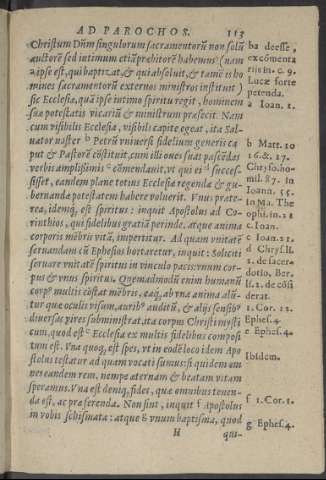 AD PAROCHOS. 113
Christum Dñm singulorum sacramentorũ non solũ
auctorẽ sed intimum etiã præbitorẽ habemus (nam
ipse est, qui baptizat, & qui absoluit, & tamẽ is ho
mines sacramentorũ externos ministros instituit)
sic Ecclesiæ, quã ipse intimo spiritu regit, hominem
suæ potestatis vicariũ & ministrum præfecit. Nam
cum visibilis Ecclesia, visibili capite egeat, ita Sal-
uator noster b Petrũ vniuersi fidelium generis ca
put & Pastorẽ cõstituit, cum illi oues suas pascẽdas
verbis amplissimis c cõmendauit, vt qui ei d succes-
sisset, eandem plane totius Ecclesiæ regendæ & gu-
bernandæ potestatem habere voluerit. Vnus præte-
rea, idemq́, est spiritus: inquit Apostolus ad Co-
rinthios, qui fidelibus gratiã perinde, atque anima
corporis mẽbris vitã, impertitur. Ad quam vnitatẽ
seruandam cũ Ephesios hortaretur, inquit: Soliciti
seruare vnitatẽ spiritus in vinculo pacis: vnum cor-
pus & vnus spiritus. Quemadmodũ enim humanũ
corp9 multis cõstat mẽbris, eaq́, ab vna anima alũ-
tur quæ oculis visum, auribus auditũ, & alijs sensib9
diuersas vires subministrat, ita corpus Christi mysti
cum, quod est e Ecclesia ex multis fidelibus compos
tum est. Vna quoq́, est spes, vt in eodẽ loco idem Apo
stolus testatur ad quam vocati sumus: si quidem om
nes eandem rem, nempe æternam & beatam vitam
speramus. Vna est deniq́, fides, quæ omnibus tenen-
da est, ac præ se ferenda. Non sint, inquit f Apostolus
in vobis schismata: atque g vnum baptisma, quod
H qui-
ba deesse,
ex cõmenta
riis in. c. 9.
Lucæ forte
petenda.
a Ioan. 1.
b Matt. 10
16. & 17.
Chryso. ho-
mil. 87. In
Ioann. 55.
In Ma. The
ophi. in. 21
c. Ioan.
c Ioan. 21.
d Chrys. li.
2. de sacer-
dotio, Ber.
li. 2. de cõsi
derat.
1. Cor. 12.
Ephes. 4
e Ephes. 4.
Ibidem.
f 1. Cor. 1.
g Ephes. 4.